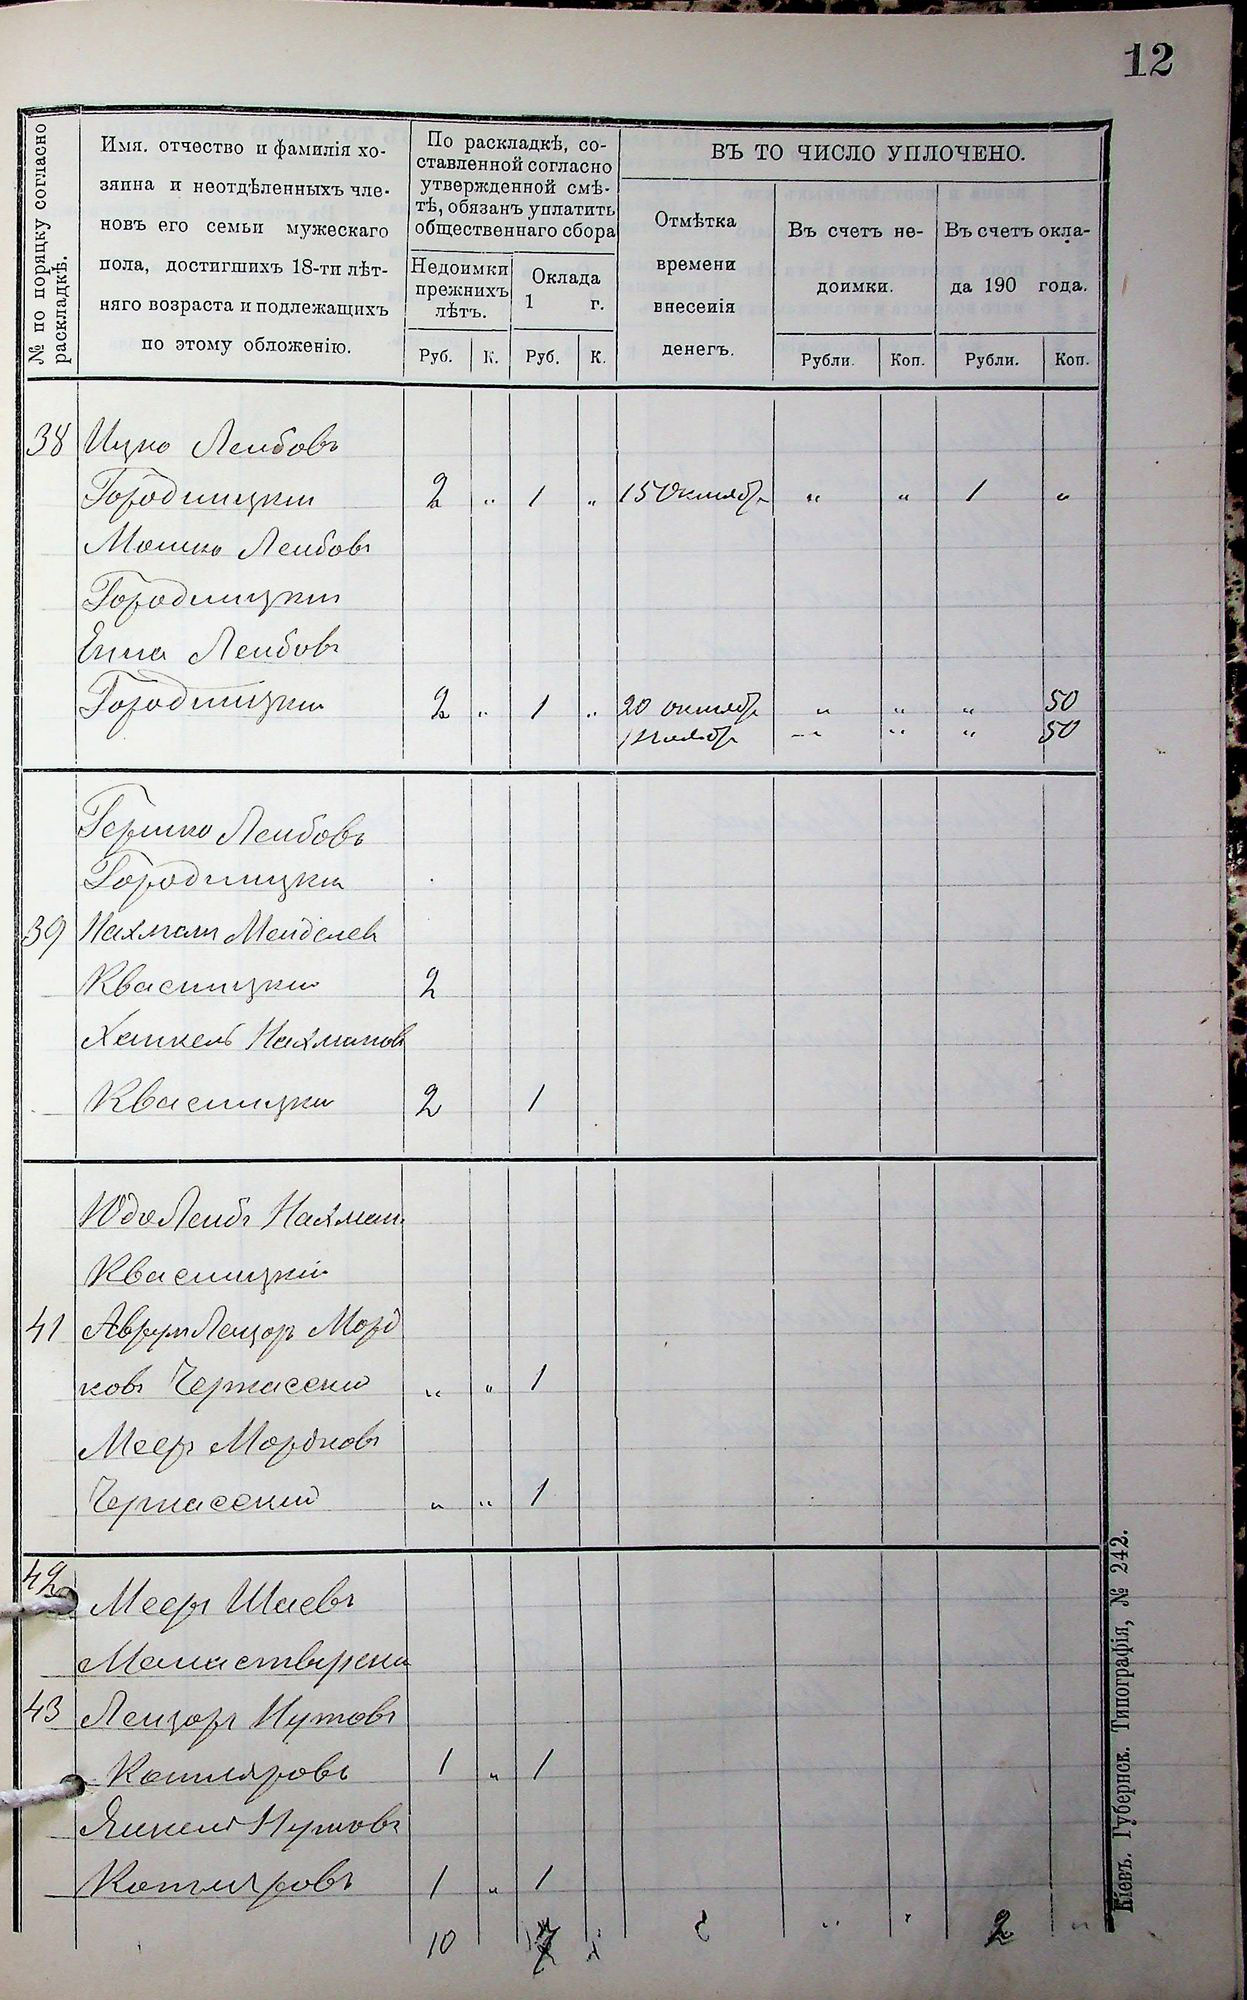 12
№ по порядку согласно раскладкѣ.
Имя. отчество и фамилія хо-
зяина и неотдѣленныхъ чле-
новъ его семьи мужескаго
пола, достигшихъ 18-ти лѣт-
няго возраста и подлежащихъ
по этому обложенію.
По раскладкѣ, со-
ставленной согласно
утвержденной смѣ-
тѣ, обязанъ уплатить
общественнаго сбора
Недоимки
прежнихъ
лѣтъ.
Оклада
1 г.
Руб. К. Руб. К.
ВЪ ТО ЧИСЛО УПЛОЧЕНО.
Отмѣтка
времени
внесенія
денегъ.
Въ счетъ не-
доимки.
Въ счетъ окла-
да 190 года.
Рубли. Коп. Рубли. Коп.
38 Ицко Лейбовъ
Городницкій 2 „ 1 „ 15 Октябр „ „ 1 „
Мошко Лейбовъ
Городницкій
Лейбовъ
Городницкій 2 „ 1 „ 20 октябр „ „ „ 50
1 Ноябр „ „ „ 50
Гершко Лейбовъ
Городницкій
39 Нахманъ Менделев
Квасницкій 2
Хаикель Нахмановъ
Квасницкій 2 1
Юдо Лейбъ Нахман
Квасницкій
41 Аврум Лейзоръ Морд
ковъ Черкасскій „ „ 1
Мееръ Мордковъ
Черкасскій „ „ 1
42 Мееръ Шаевъ
Монастырскій
43 Лейзоръ Нутовъ
Котляровъ 1 „ 1
Янкель Нутовъ
Котляровъ 1 „ 1
10 7 2 „
Кіевъ. Губернск. Типографія, № 242.